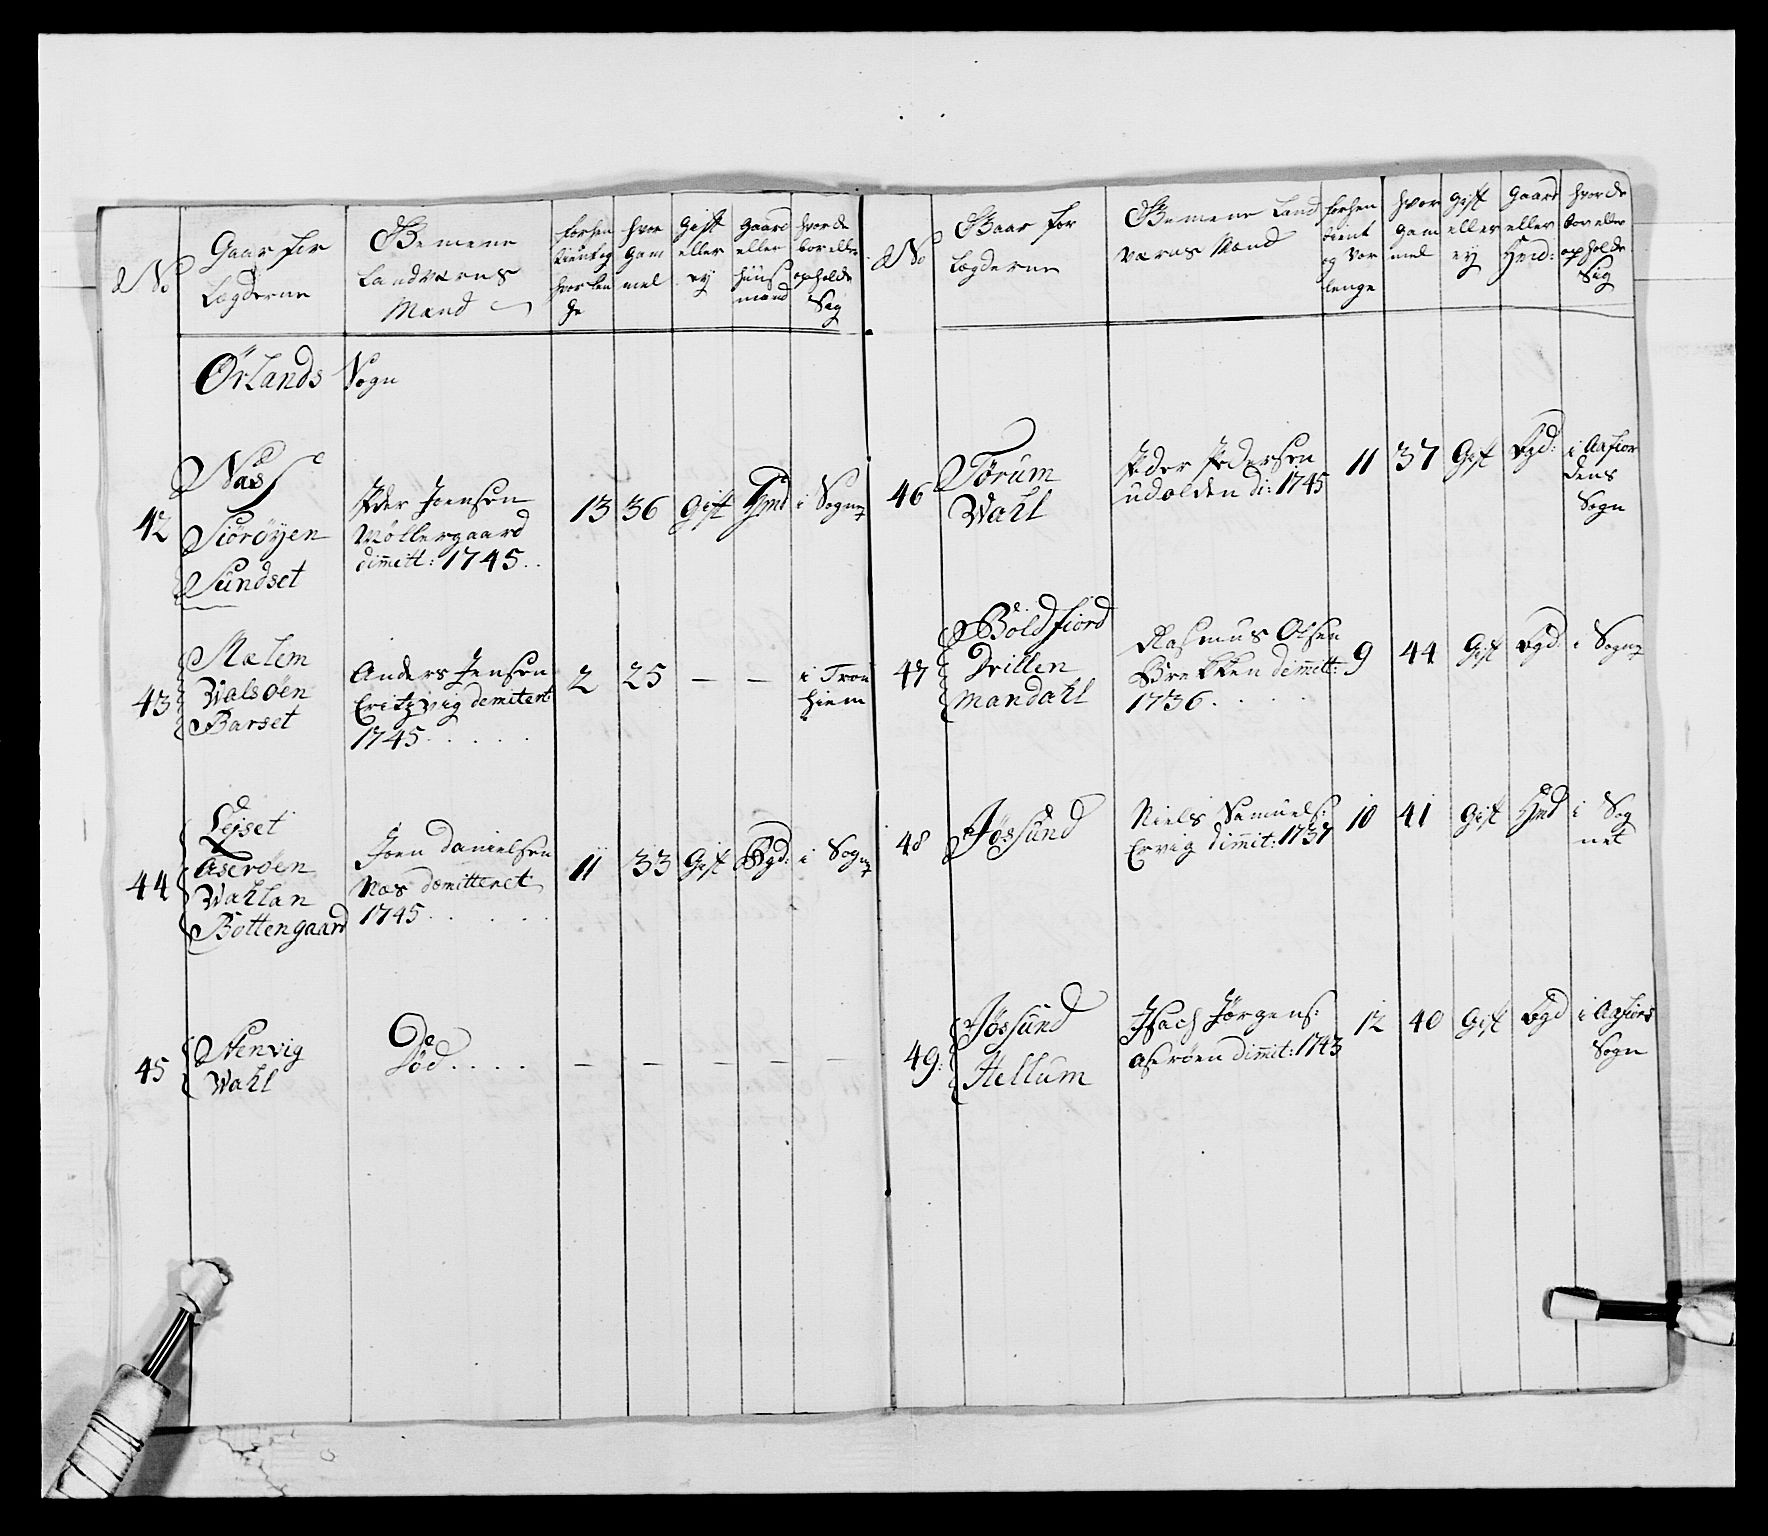 No
Gaar for
Lægderne
Gemene
Landværns
Mænd
forhen
tient og
hvor len
ge
hvor
gam
mel
Gift
eller
ey
Gaard
eller
huus
mand
hvor de
bor eller
opholde
Sig
Ørlands Sogn
42
Næs
Siørøyen
Sundset
Peder Joensen
Møllergaard
dimitt: 1745..
13
36
Gift
Hmd
i Sogn
43
Mælem
Walsøen
Barset
Anders Jensen
Eritzvig demitert
1745.....
2
25
—
—
i Tron
hiem
44
Lejset
Aserøen
Wahlan
Bottengaard
Joen Danielsen
Næs demitteret
1745.....
11
33
Gift
Bgd:
i Sogn
45
Stenvig
Wahl
Død....
—
—
—
—
—
No
Gaar for
Lægderne
Gemene Land
værns Mænd
forhen
tient
og vor
lenge
hvor
gam
mel
Gift
eller
ey
Gaard
eller
Hmd:
hvor de
bor eller
opholde
Sig
46
Tørum
Wahl
Peder Pedersen
udolden di: 1745
11
37
Gift
Bgd:
i Aafior
dens
Sogn
47
Boldfiord
Qvitten
Mandahl
Rasmus Olsen
Brekken dimitt:
1736....
9
44
Gift
Bgd
i Sogn
48
Jøssund
Niels Samuels:
Ervig dimit: 1737
10
41
Gift
Hmd
i Sog
net
49:
Jøssund
Hellum
Isach Jørgens:
aserøen dimit: 1743
12
40
Gift
Bgd
i Aafiors
Sogn